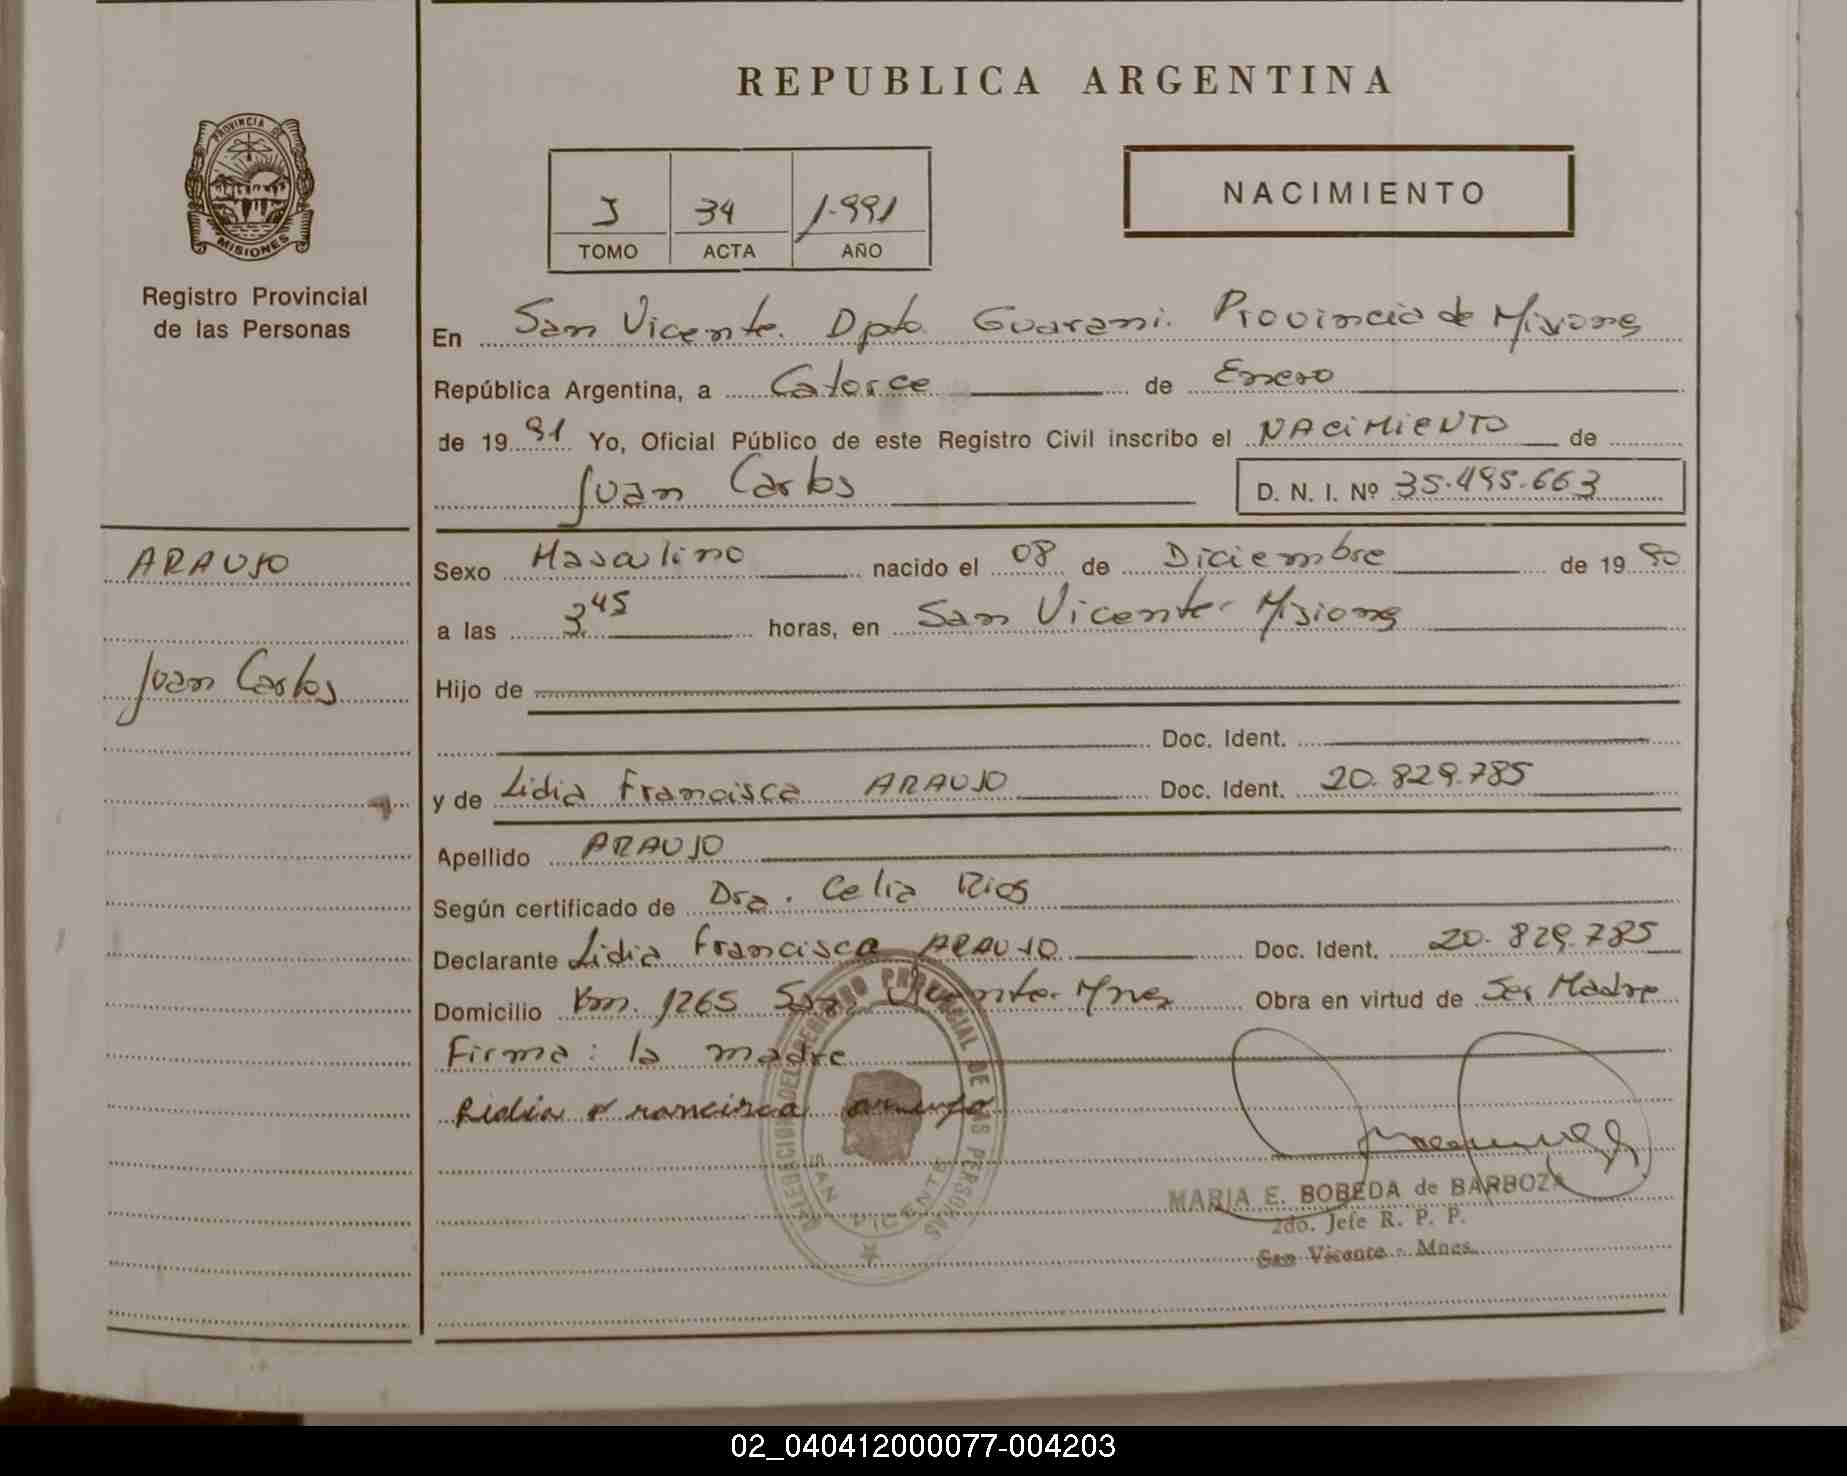 REPUBLICA ARGENTINA
PROVINCIA DE
MISIONES
Registro Provincial
de las Personas
I 34 1.991
TOMO ACTA AÑO
NACIMIENTO
En San Vicente. Dpto. Guarani. Provincia de Misiones
República Argentina, a Catorce de Enero
de 1991 Yo, Oficial Público de este Registro Civil inscribo el NACIMIENTO de
Juan Carlos D. N. I. Nº 35.495.663
ARAUJO
Juan Carlos
Sexo Masculino nacido el 08 de Diciembre de 1990
a las 3.45 horas, en San Vicente- Misiones
Hijo de
Doc. Ident.
y de Lidia Francisca ARAUJO Doc. Ident. 20.829.785
Apellido ARAUJO
Según certificado de Dra. Celia Rios
Declarante Lidia Francisca ARAUJO Doc. Ident. 20.829.785
Domicilio Km. 1265 San Vicente- Mnes Obra en virtud de Ser Madre
Firma: la madre
Lidia Francisca araujo
DEL REGISTRO PROVINCIAL DE LAS PERSONAS
SAN VICENTE
MARIA E. BOBEDA de BARBOZA
2do. Jefe R. P. P.
San Vicente - Mnes.
02_040412000077-004203